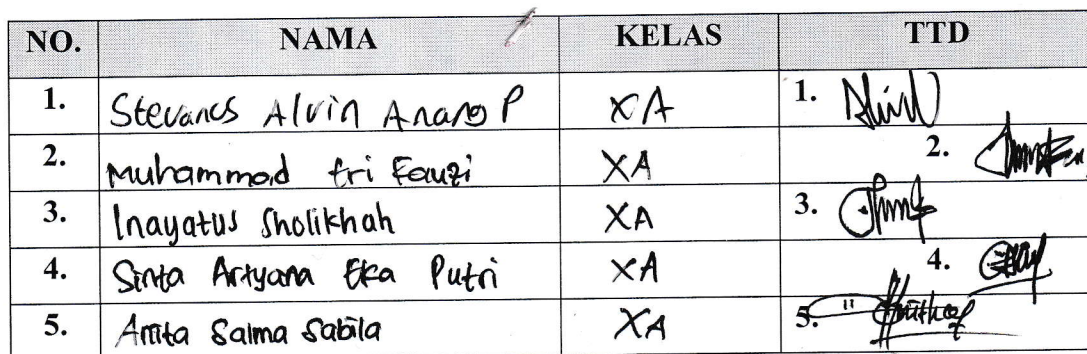 NO. NAMA KELAS TTD
1. Stevanus Alvin Anang P XA 1.
2. Muhammad tri Fauzi XA 2.
3. Inayatus Sholikhah XA 3.
4. Sinta Artyana Eka Putri XA 4.
5. Anita Salma Sabila XA 5.